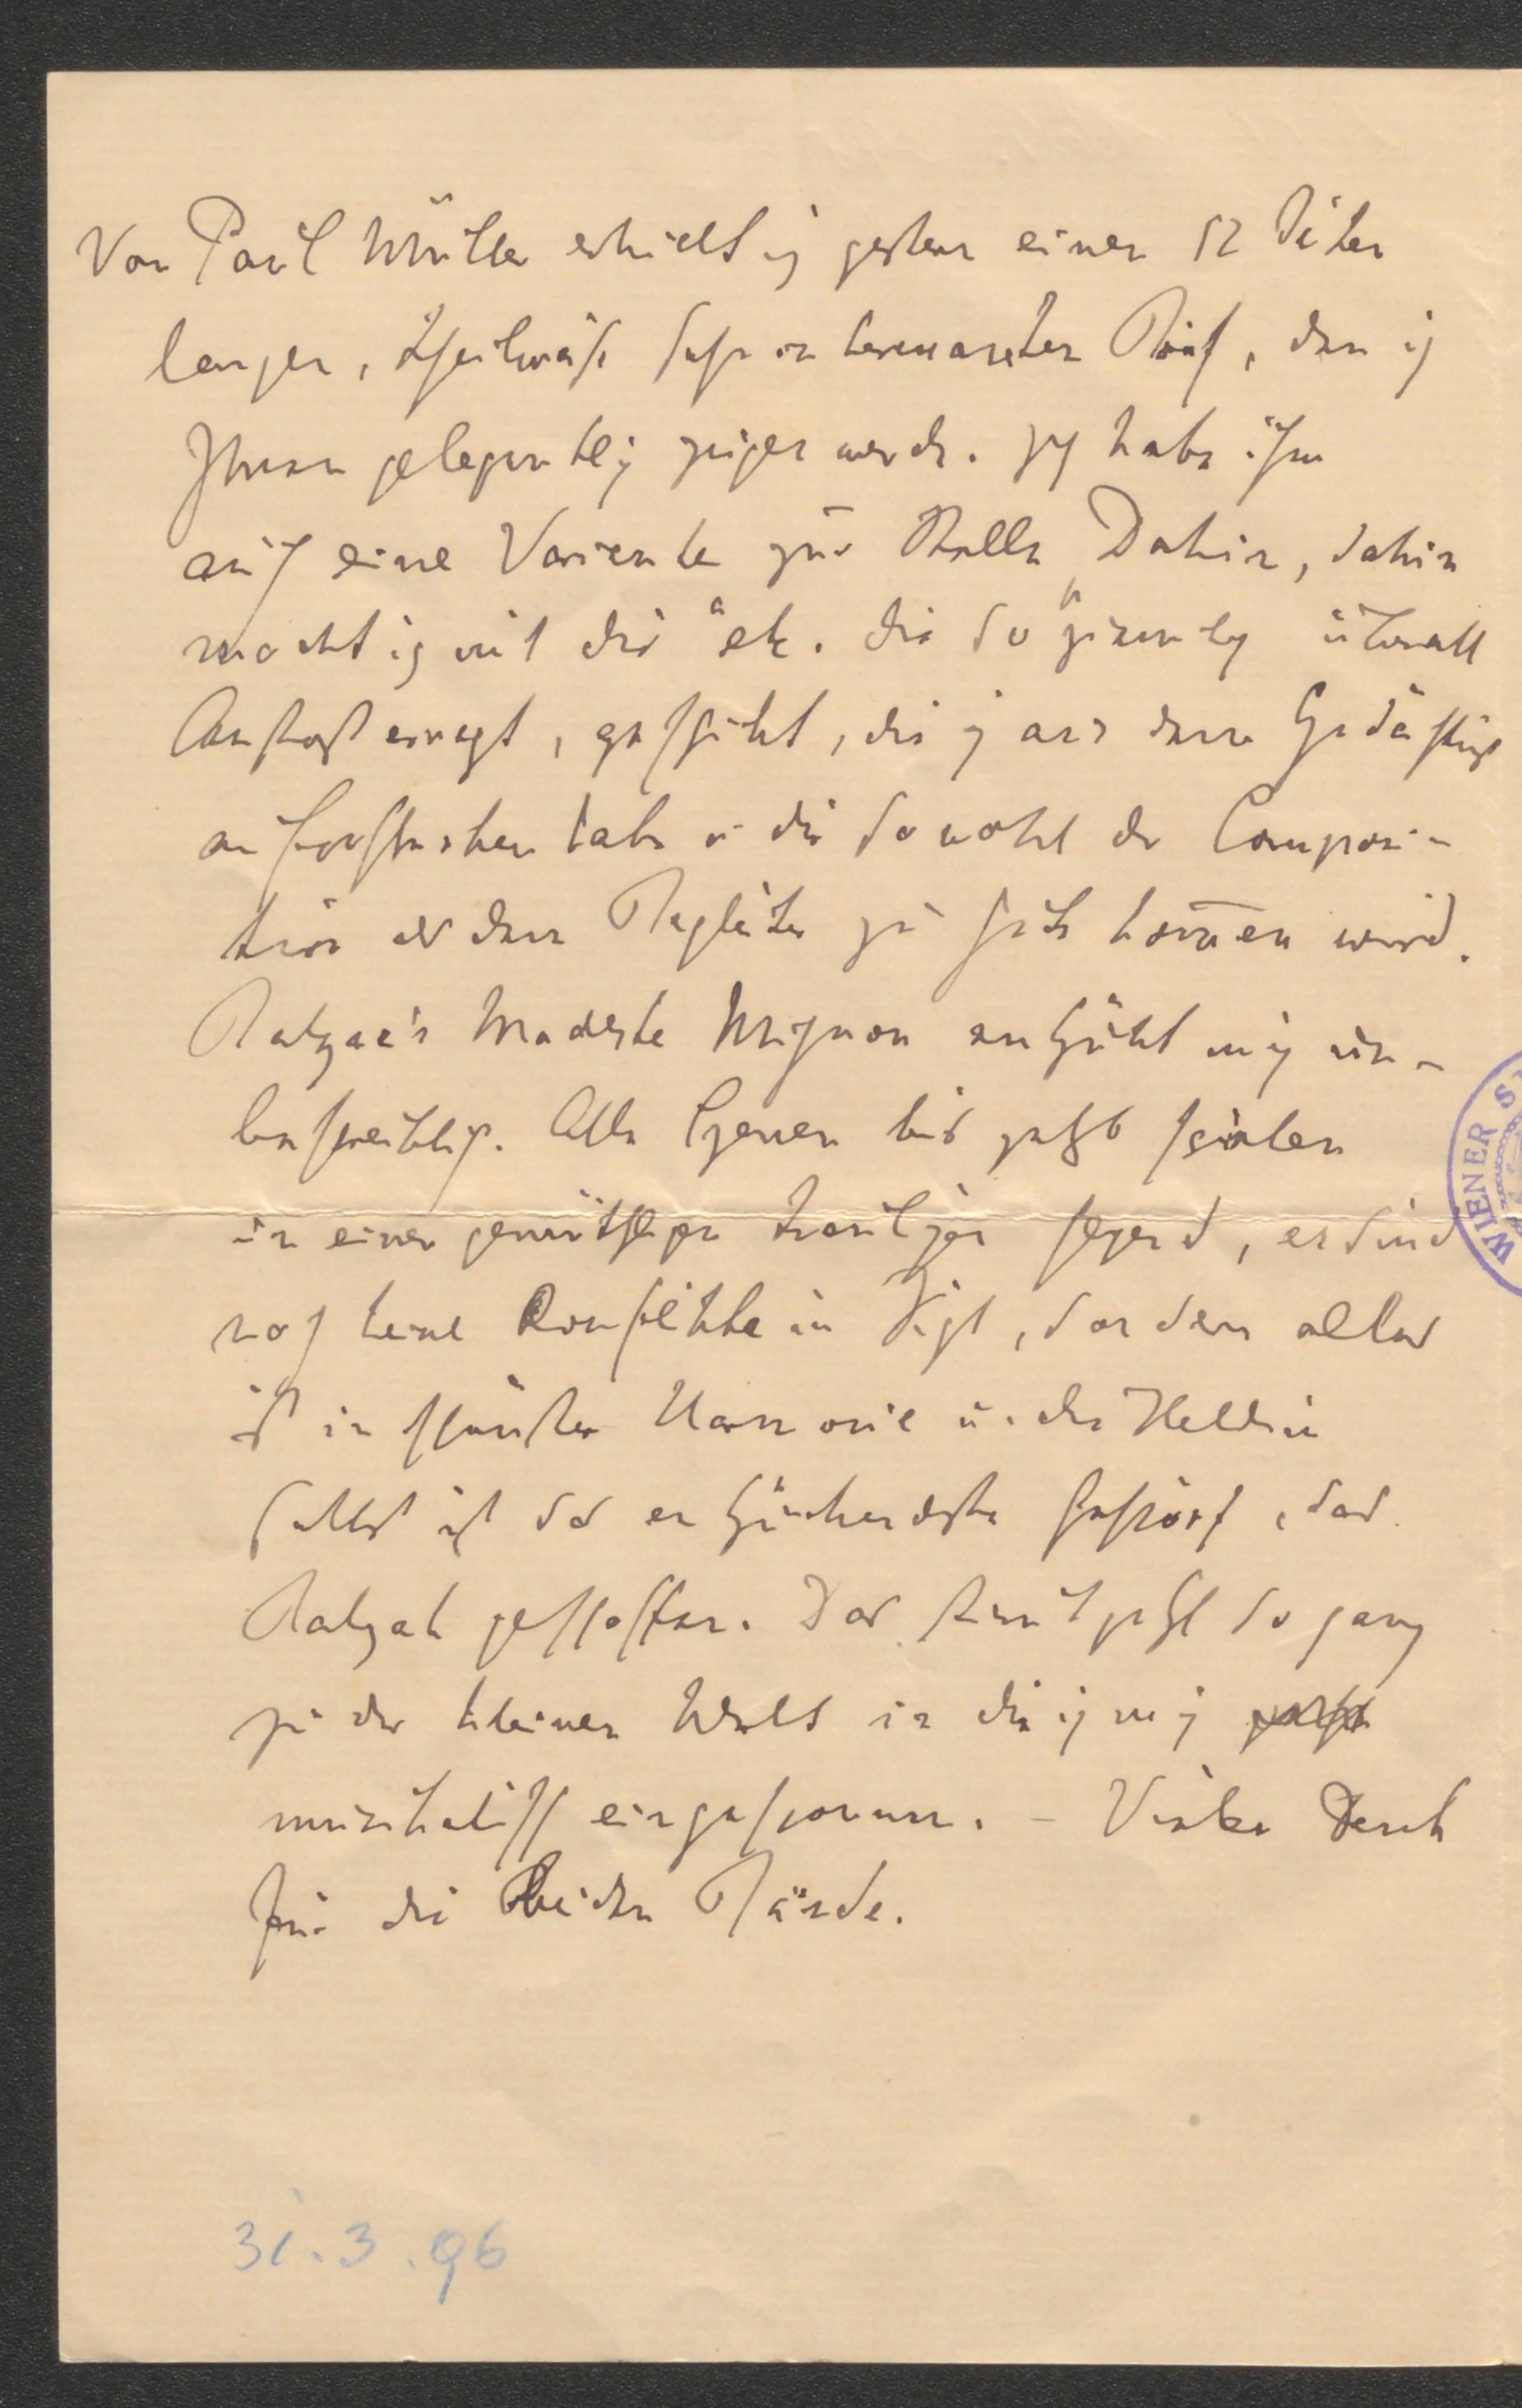 Von Paul Müller erhielt ich gestern einen 12 Seiten
langen, theilweise sehr interessanten Brief, den ich
Ihnen gelegentlich zeigen werde. Ich habe ihm
auf eine Variente zur Stelle „Dahin, dahin
möcht ich mit dir" etc. die so ziemlich überall
Anstoß erregt, geschickt, die ich aus dem Gedächtniß
aufgeschrieben habe u. die sowohl der Composi-
tion als dem Begleiter zu gute kom̅en wird.
Balzac's Modeste Mignon entzückt mich un-
beschreiblich. Alle Szenen bis jetzt spielen
in einer gemüthlichen Gegend, es sind
noch keine Konflikte in Sicht, sondern alles
ist in schönster Harmonie u. die Heldin
selbst ist das entzückendste Geschöpf, das
Balzak geschaffen. Das stimmt jetzt so ganz
zu der kleinen Welt in die ich mich
musikalisch eingesponnen. – Vielen Dank
für die beiden Bände.
31.3.96
WIENER